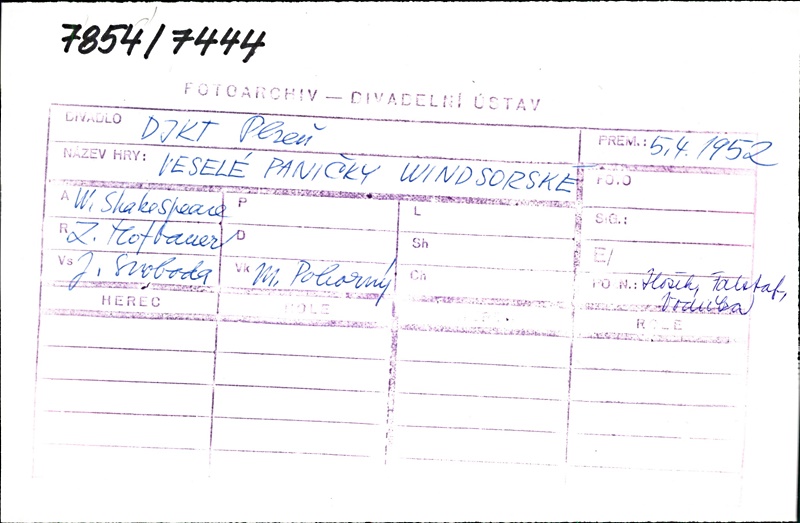 7854/7444
FOTOARCHIV — DIVADELNÍ ÚSTAV
DIVADLO DJKT Plzeň PREM.: 5.4.1952
NÁZEV HRY: VESELÉ PANIČKY WINDSORSKÉ FOTO
A W. Shakespeare P L SIG.:
R Z. Hofbauer D Sh E/
Vs J. Svoboda Vk M. Pokorný Ch POZN.: Falstaf,
HEREC ROLE ROLE